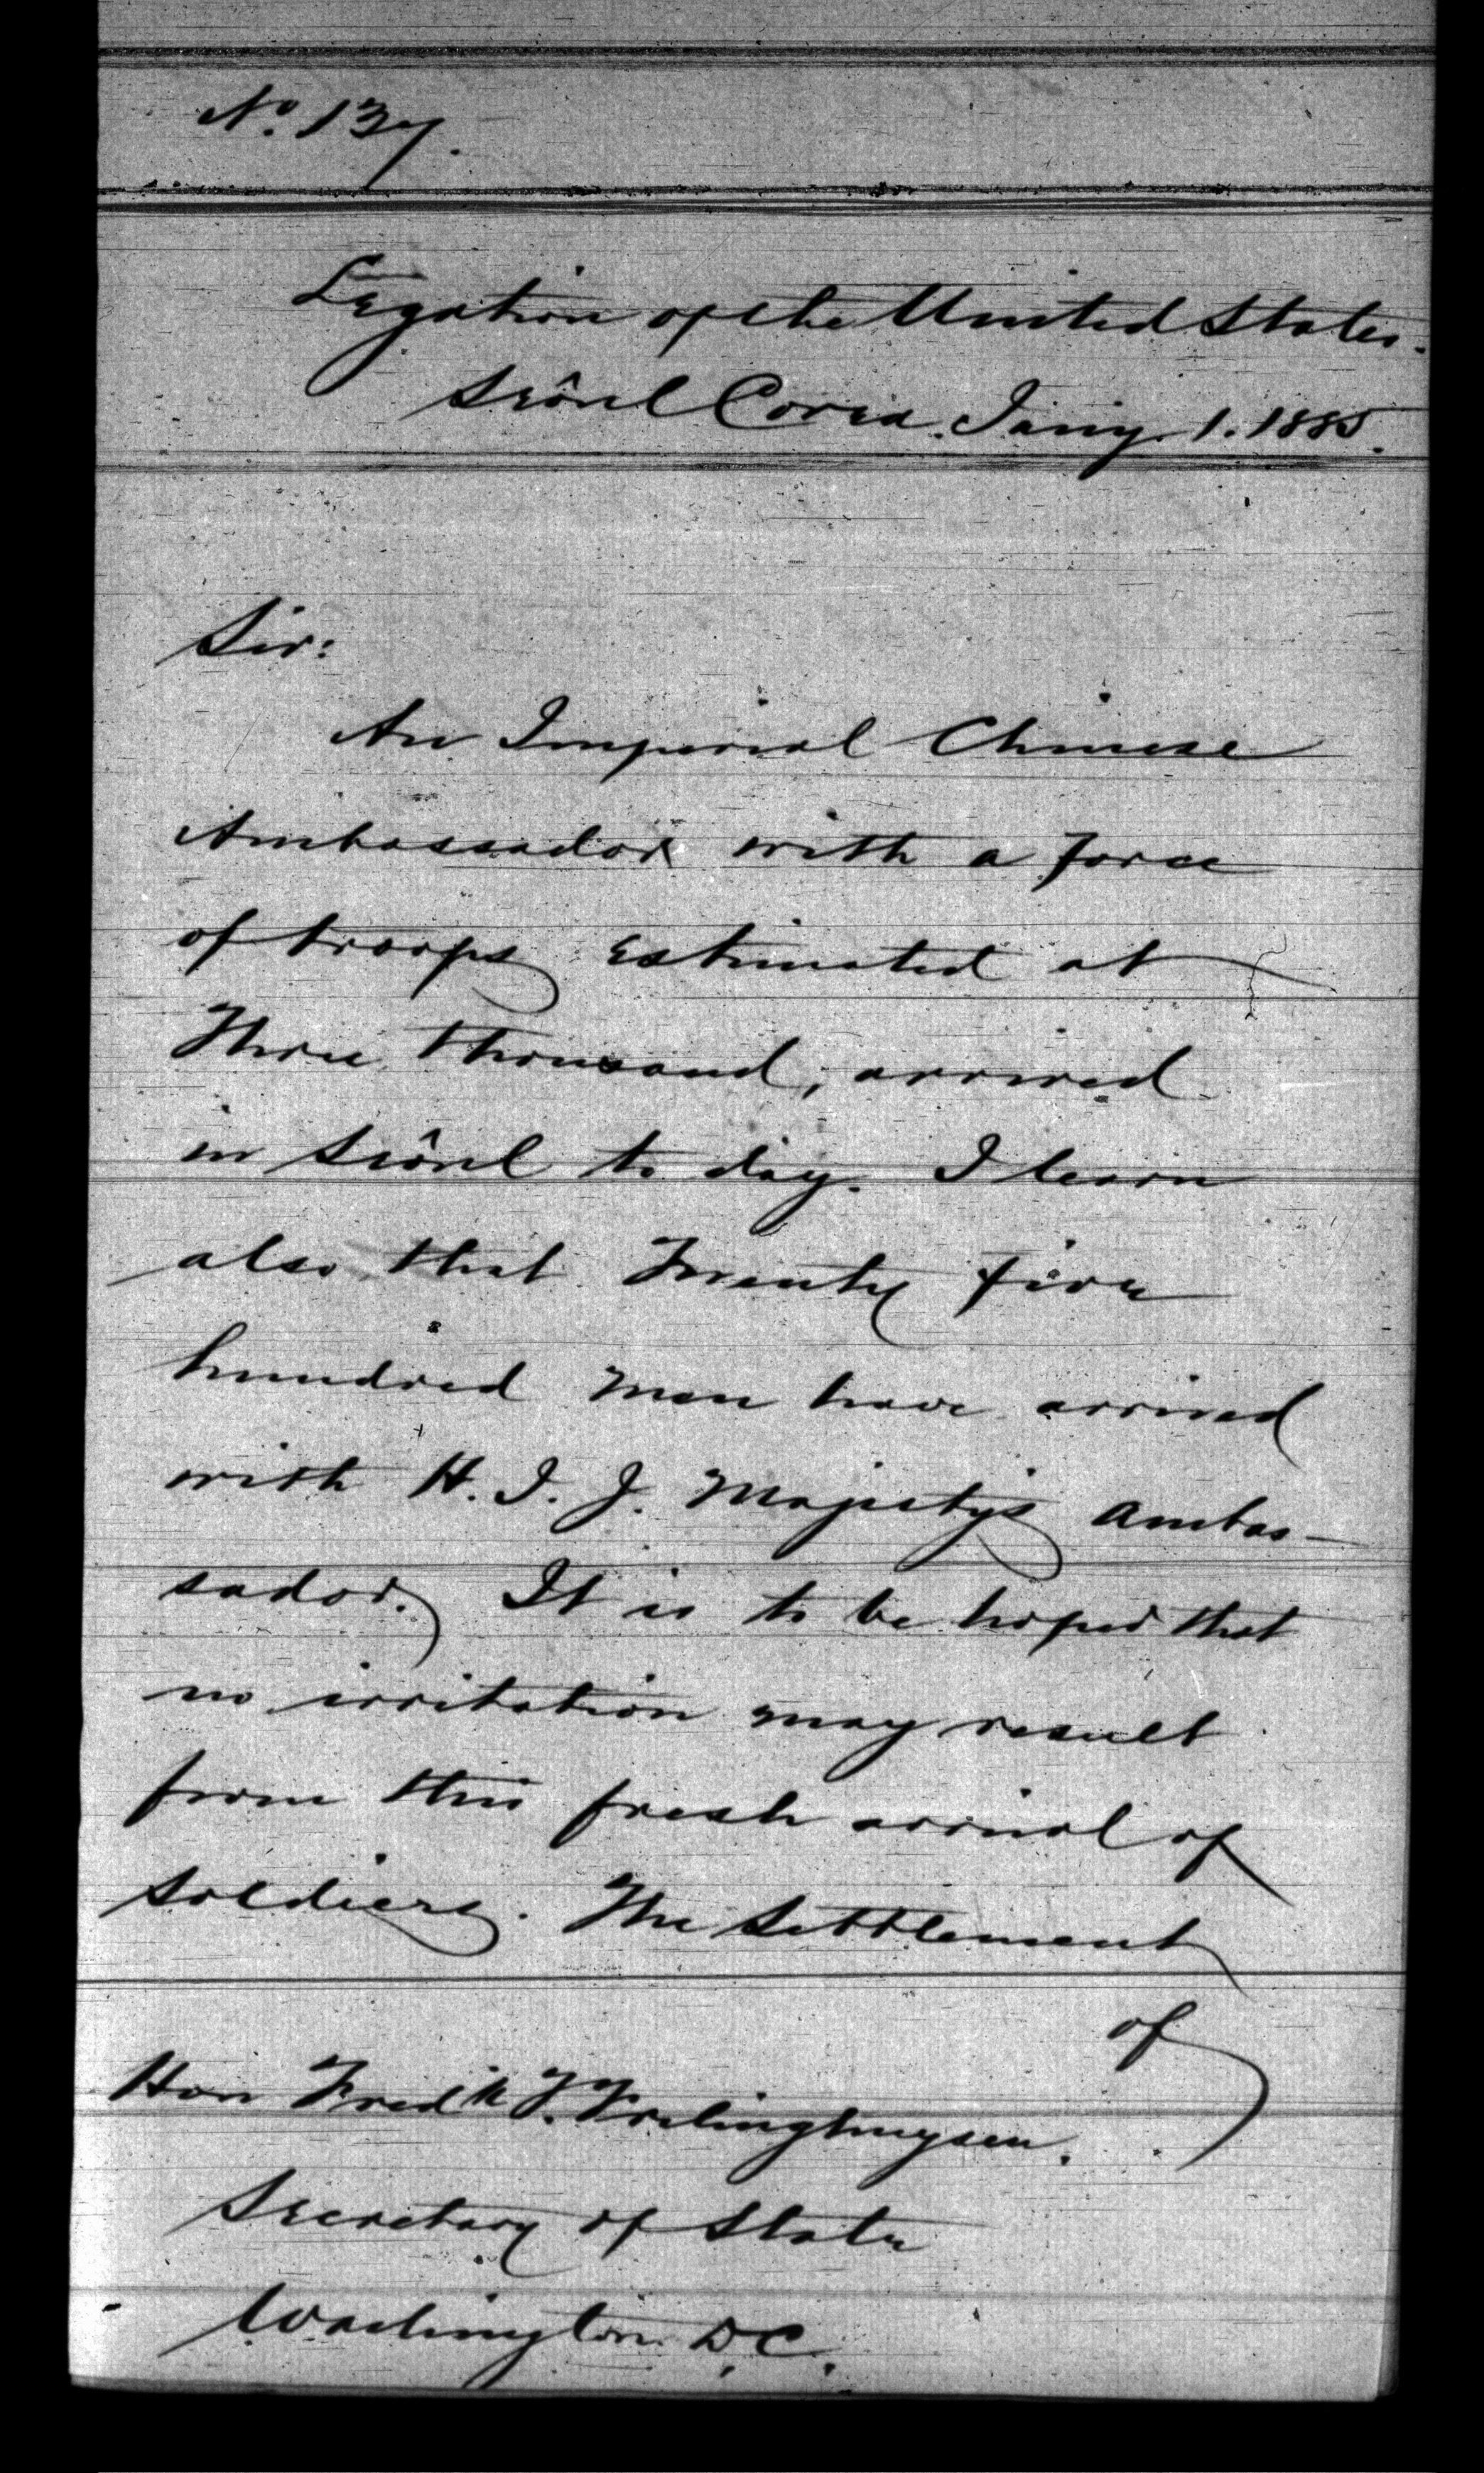 No. 137.
Legation of the United States.
Seôul Corea. Jany. 1. 1885.
Sir:
An Imperial Chinese
Ambassador with a force
of troops estimated at
Three thousand, arrived
in Seôul to day. I learn
also that Twenty five
hundred men have arrived
with H. I. J. Majesty's Ambas-
sador. It is to be hoped that
no irritation may result
from this fresh arrival of
soldiers. The Settlement
of
Hon Fredk. T. Frelinghuysen.
Secretary of State
Washington D.C.